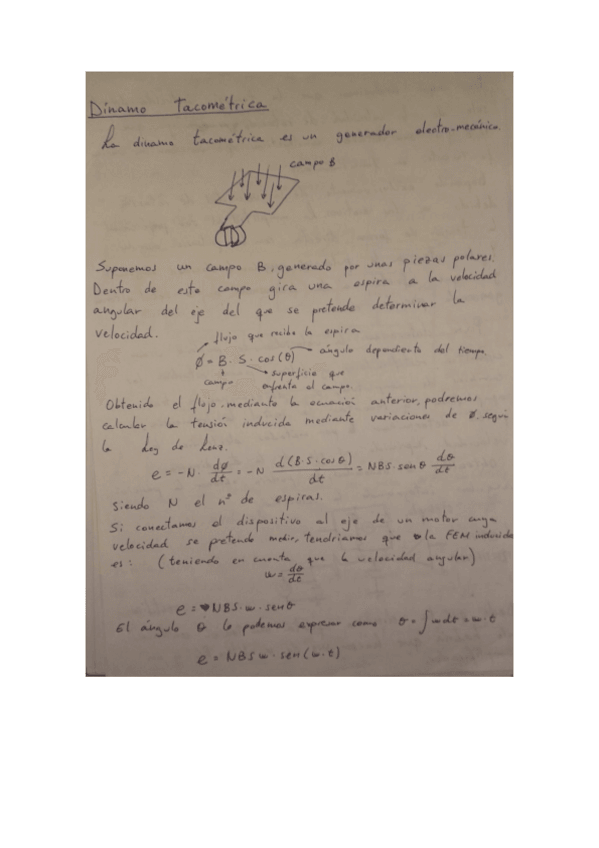 Dinamo Tacométrica
La dinamo tacométrica es un generador electro-mecánico.
campo B
Suponemos un campo B, generado por unas piezas polares.
Dentro de este campo gira una espira a la velocidad
angular del eje del que se pretende determinar la
velocidad.
flujo que recibe la espira
Ø = B · S · cos(θ) ángulo dependiente del tiempo.
campo superficie que
enfrenta al campo.
Obtenido el flujo mediante la ecuación anterior, podremos
calcular la tensión inducida mediante variaciones de Ø, según
la Ley de Lenz.
e = -N · dØ/dt = -N d(B·S·cosθ)/dt = NBS·senθ dθ/dt
Siendo N el nº de espiras.
Si conectamos el dispositivo al eje de un motor cuya
velocidad se pretende medir, tendríamos que la FEM inducida
es: (teniendo en cuenta que la velocidad angular)
w = dθ/dt
e = NBS·w·senθ
El ángulo θ lo podemos expresar como θ = ∫wdt = w·t
e = NBSw·sen(w·t)